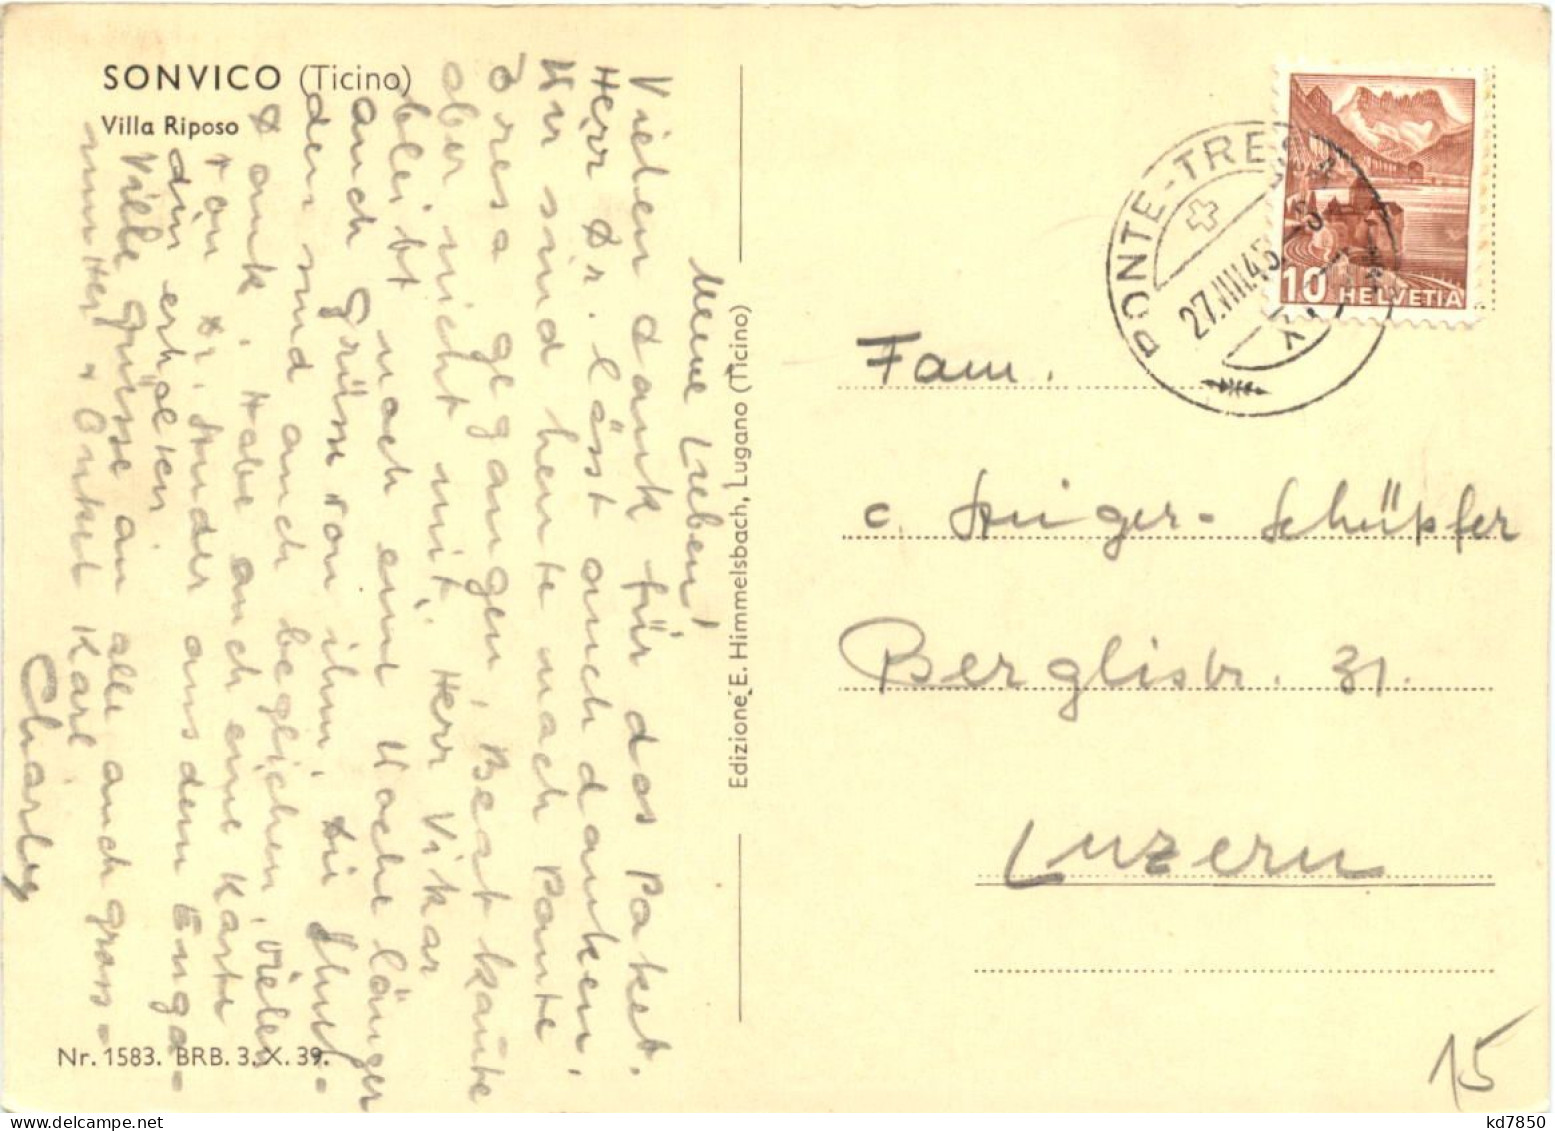 SONVICO (Ticino)
Villa Riposo
Meine Lieben!
Vielen Dank für das Paket.
Herr Dr. lässt auch danken,
Wir sind heute nach Ponte
Tresa gegangen, Beat konnte
aber nicht mit. Herr Vikar
bleibt noch eine Woche länger
auch Grüsse von ihm. Die
den sind auch beglichen, vielen
Dank. Habe auch eine Karte
von Dr. Studer aus dem Enga-
din erhalten.
Viele Grüsse an alle auch gross-
mutter & Onkel Karl
Charley
Nr. 1583. BRB. 3. X. 39.
Edizione E. Himmelsbach, Lugano (Ticino)
PONTE-TRESA
27.VIII.45
10 HELVETIA
Fam.
c. Steiger-Schüpfer
Berglistr. 31.
Luzern
15
kd7850